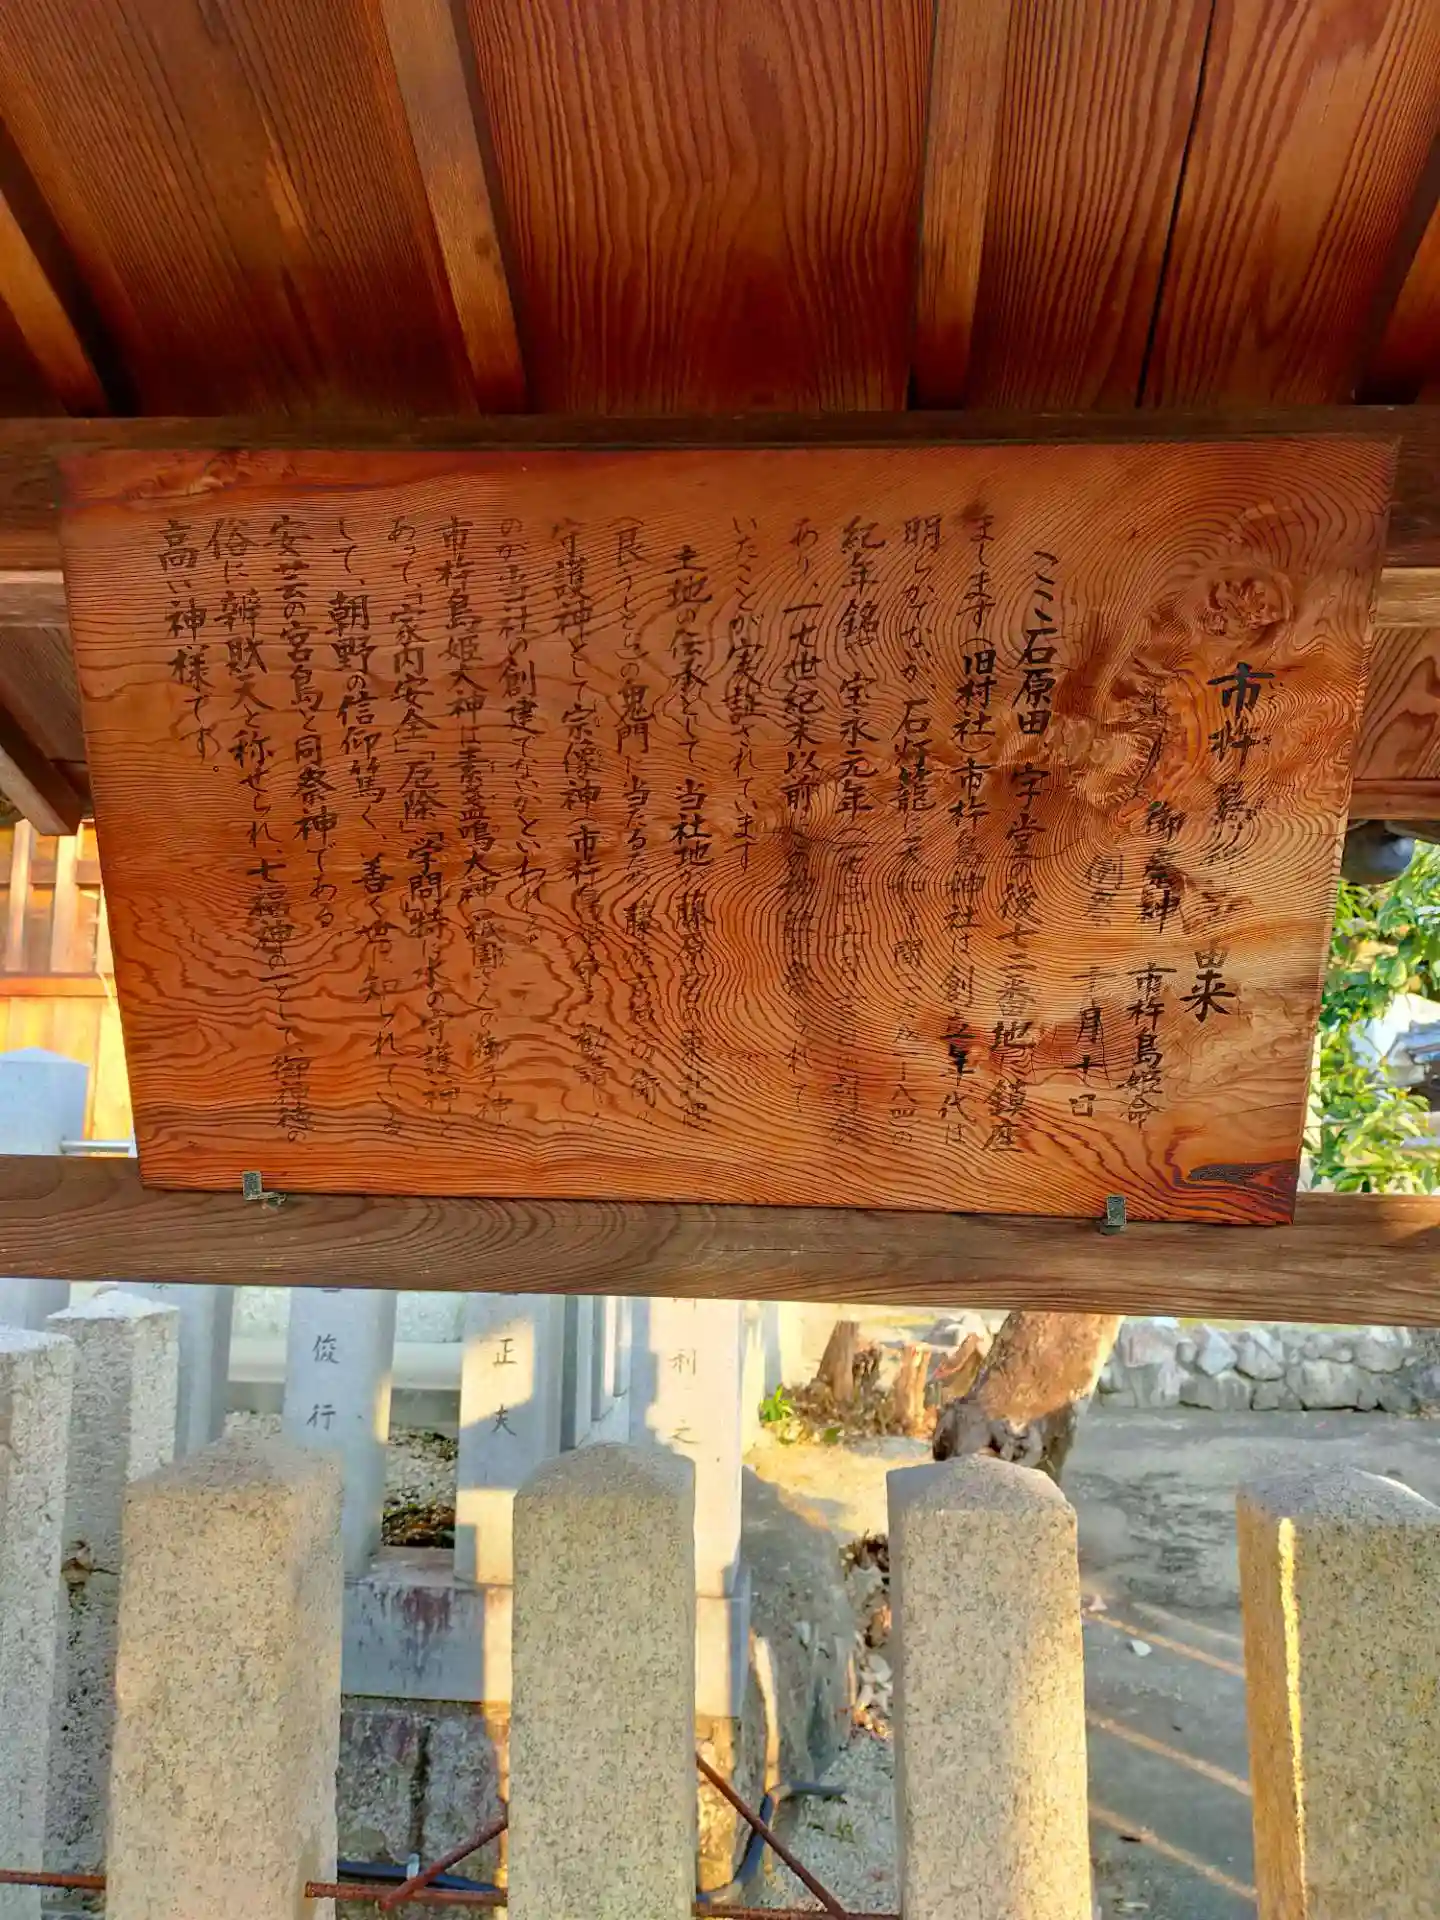 市杵島 由来
御祭神 市杵島姫命
例祭 十月十日
ここ石原田 字堂の後七二番地に鎮座
まします（旧村社）市杵島神社は創立年代は
明らかでないが、石灯籠に天和の間（一六八一～八四）の
紀年銘 宝永元年（一七
あり、一七世紀末以前に
いたことが実証されています
土地の伝承として 当社地が藤原宮の東北
（艮うしとら）の鬼門に当たるため、藤原
守護神として宗像神（市杵島 勧請した
のが当社の創建でないかといわれ
市杵島姫大神は素盞鳴大神（祇園さんの御子神
あって、「家内安全」「厄除」「学問」特に水の守護神
して、朝野の信仰篤く、善く世に知られている
安芸の宮島と同祭神である
俗に辨財天と称せられ、七福神の一として御神徳の
高い神様です。
俊行
正夫
利之